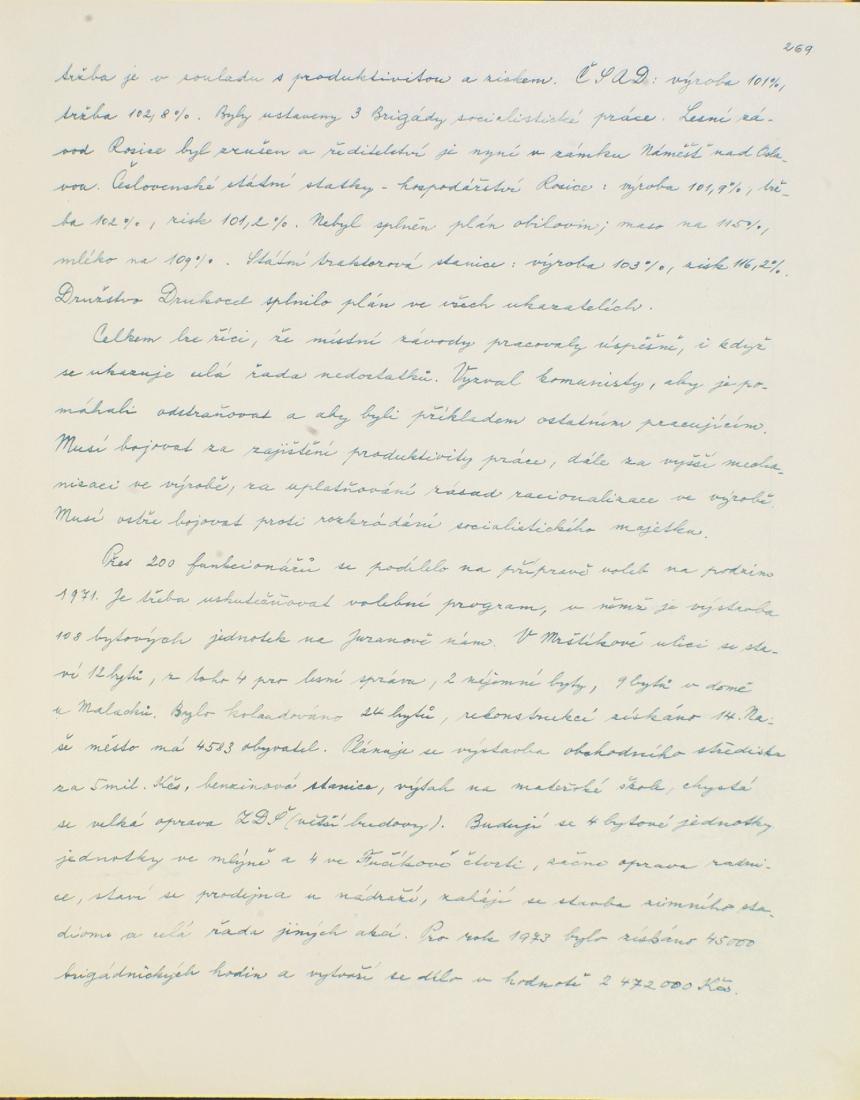 269
tržba je v souladu s produktivitou a ziskem. ČSAD: výroba 101%,
tržba 102,8%. Byly ustaveny 3 Brigády socialistické práce. Lesní zá-
vod Rosice byl zrušen a ředitelství je nyní v zámku Náměšť nad Osla-
vou. Československé státní statky - hospodářství Rosice: výroba 101,9%, trž-
ba 102%, zisk 101,2%. Nebyl splněn plán obilovin; maso na 115%,
mléko na 109%. Státní traktorová stanice: výroba 103%, zisk 116,2%.
Družstvo Drukocel splnilo plán ve všech ukazatelích.
Celkem lze říci, že místní závody pracovaly úspěšně, i když
se ukazuje celá řada nedostatků. Vyzval komunisty, aby je po-
máhali odstraňovat a aby byli příkladem ostatním pracujícím.
Musí bojovat za zajištění produktivity práce, dále za vyšší mecha-
nizaci ve výrobě, za uplatňování zásad racionalizace ve výrobě.
Musí ostře bojovat proti rozkrádání socialistického majetku.
Přes 200 funkcionářů se podílelo na přípravě voleb na podzim
1971. Je třeba uskutečňovat volební program, v němž je výstavba
108 bytových jednotek na Juranově nám. V Mrštíkově ulici se sta-
ví 12 bytů, z toho 4 pro lesní správu, 2 nájomní byty, 9 bytů v domě
u Malachů. Bylo kolaudováno 24 bytů, rekonstrukcí získáno 14. Na-
še město má 4583 obyvatel. Plánuje se výstavba obchodního střediska
za 5 mil. Kčs, benzinová stanice, výtah na mateřské škole, chystá
se velká oprava ZDŠ (větší budovy). Budují se 4 bytové jednotky
jednotky ve mlýně a 4 ve Fučíkově čtvrti, začne oprava radni-
ce, staví se prodejna u nádraží, zahájí se stavba zimního sta-
dionu a celá řada jiných akcí. Pro rok 1973 bylo získáno 45000
brigádnických hodin a vytvoří se dílo v hodnotě 2 472 000 Kčs.